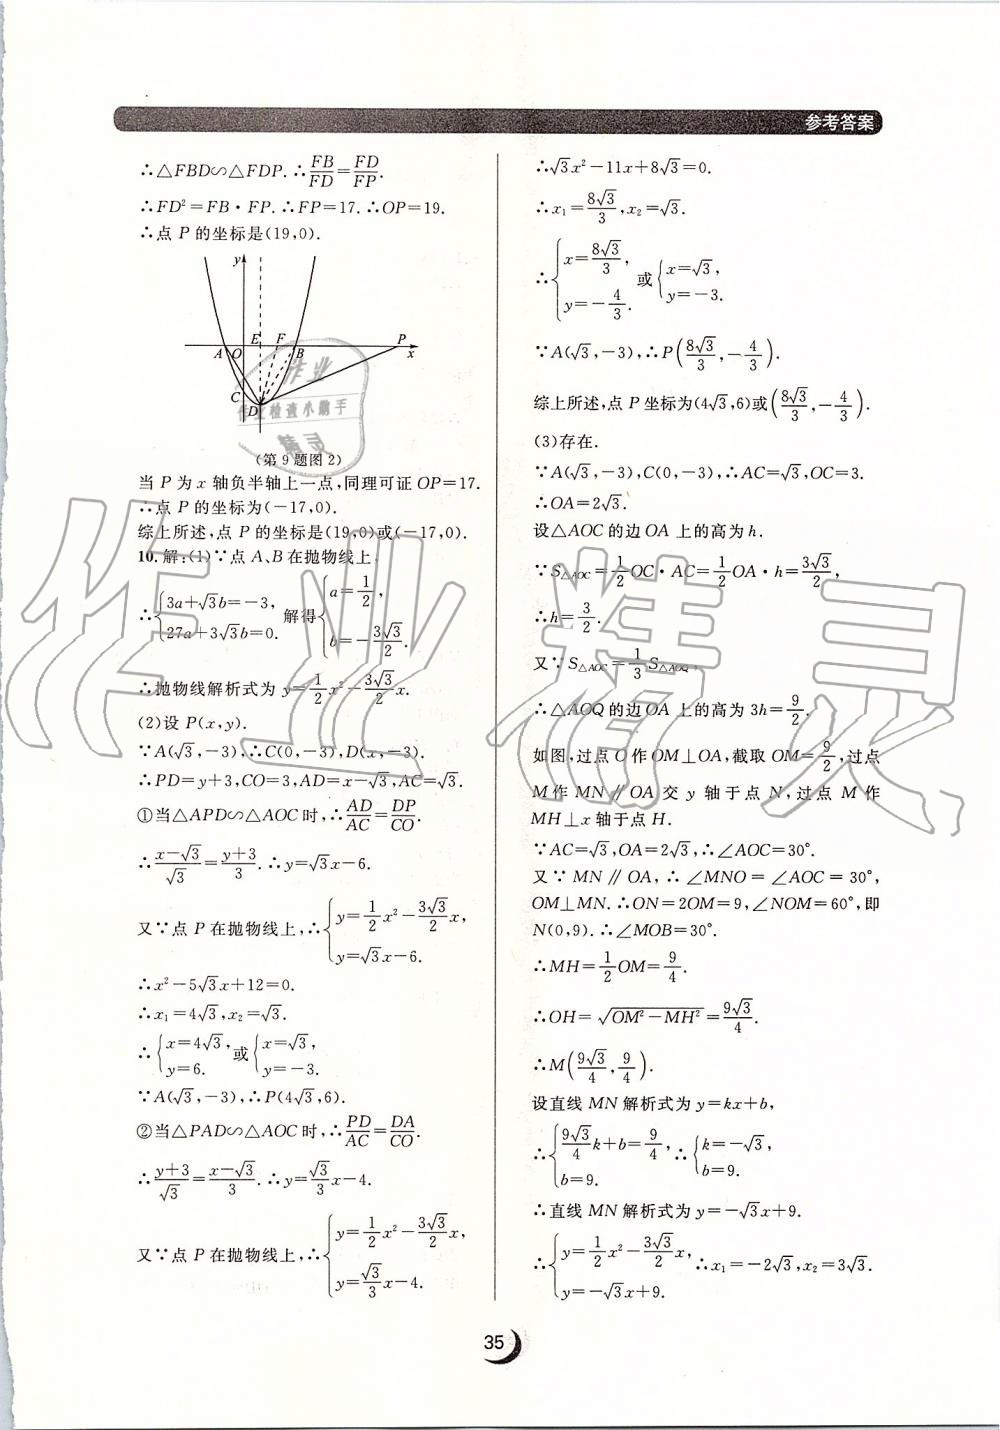 参考答案
∴△FBD∽△FDP. ∴FB/FD=FD/FP.
∴FD²=FB·FP. ∴FP=17. ∴OP=19.
∴点 P 的坐标是(19,0).
y
E F P
A O B x
C
D
(第9题图2)
当 P 为 x 轴负半轴上一点,同理可证 OP=17.
∴点 P 的坐标为(-17,0).
综上所述,点 P 的坐标是(19,0)或(-17,0).
10. 解:(1)∵点 A、B 在抛物线上,
∴{3a+√3b=-3, 27a+3√3b=0. 解得{a=1/2, b=-3√3/2.
∴抛物线解析式为 y=1/2x²-3√3/2x.
(2)设 P(x,y).
∵A(√3,-3),∴C(0,-3),D(x,-3).
∴PD=y+3,CO=3,AD=x-√3,AC=√3.
①当△APD∽△AOC 时,∴AD/AC=DP/CO.
∴(x-√3)/√3=(y+3)/3. ∴y=√3x-6.
又∵点 P 在抛物线上,∴{y=1/2x²-3√3/2x, y=√3x-6.
∴x²-5√3x+12=0.
∴x₁=4√3,x₂=√3.
∴{x=4√3, y=6. 或{x=√3, y=-3.
∵A(√3,-3),∴P(4√3,6).
②当△PAD∽△AOC 时,∴PD/AC=DA/CO.
∴(y+3)/√3=(x-√3)/3. ∴y=√3/3x-4.
又∵点 P 在抛物线上,∴{y=1/2x²-3√3/2x, y=√3/3x-4.
∴√3x²-11x+8√3=0.
∴x₁=8√3/3,x₂=√3.
∴{x=8√3/3, y=-4/3. 或{x=√3, y=-3.
∵A(√3,-3),∴P(8√3/3,-4/3).
综上所述,点 P 坐标为(4√3,6)或(8√3/3,-4/3).
(3)存在.
∵A(√3,-3),C(0,-3),∴AC=√3,OC=3.
∴OA=2√3.
设△AOC 的边 OA 上的高为 h.
∵S△AOC=1/2OC·AC=1/2OA·h=3√3/2,
∴h=3/2.
又∵S△AOC=1/3S△AOQ,
∴△AOQ 的边 OA 上的高为 3h=9/2.
如图,过点 O 作 OM⊥OA,截取 OM=9/2,过点
M 作 MN∥OA 交 y 轴于点 N,过点 M 作
MH⊥x 轴于点 H.
∵AC=√3,OA=2√3,∴∠AOC=30°.
又∵MN∥OA,∴∠MNO=∠AOC=30°,
OM⊥MN. ∴ON=2OM=9,∠NOM=60°,即
N(0,9). ∴∠MOB=30°.
∴MH=1/2OM=9/4.
∴OH=√(OM²-MH²)=9√3/4.
∴M(9√3/4,9/4).
设直线 MN 解析式为 y=kx+b,
∴{9√3/4k+b=9/4, b=9. ∴{k=-√3, b=9.
∴直线 MN 解析式为 y=-√3x+9.
∴{y=1/2x²-3√3/2x, y=-√3x+9. ∴x₁=-2√3,x₂=3√3.
35
作业精灵
作业
作业检查小助手
精灵